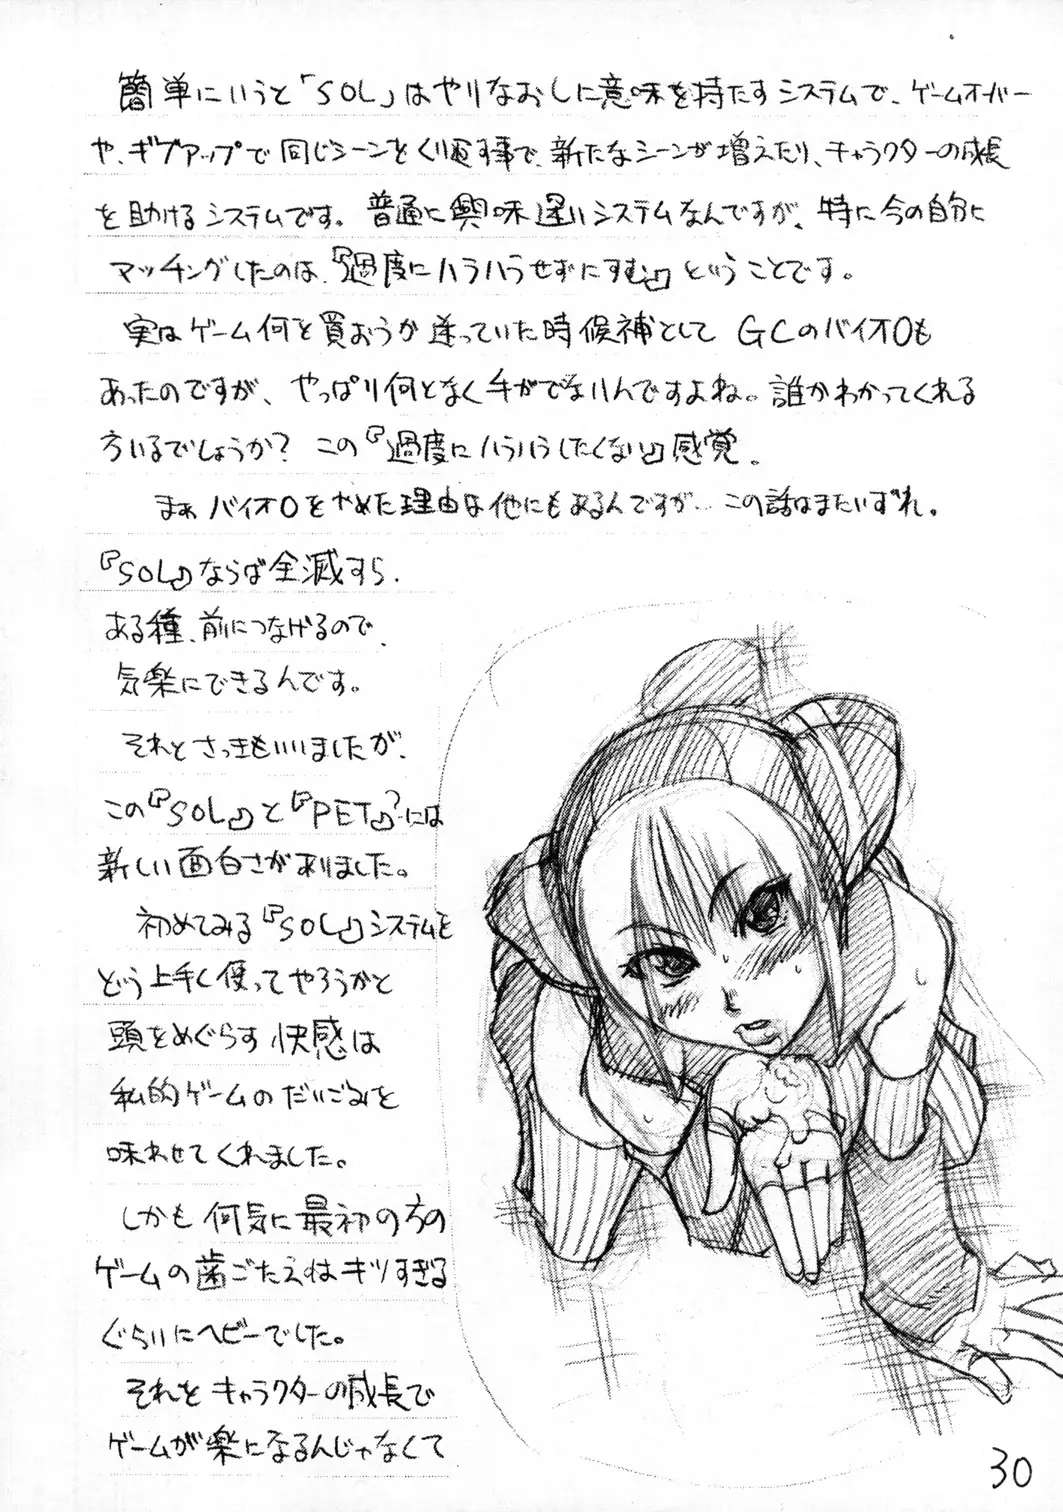 簡単にいうと「SOL」はやりなおしに意味を持たすシステムで、ゲームオーバー
や、ギブアップで同じシーンをくり返す事で、新たなシーンが増えたり、キャラクターの成長
を助けるシステムです。普通に興味深いシステムなんですが、特に今の自分に
マッチングしたのは、『過度にハラハラせずにすむ』ということです。
実はゲーム何を買おうか迷っていた時候補として GCのバイオ0も
あったのですが、やっぱり何となく手がでないんですよね。誰かわかってくれる
方いるでしょうか? この『過度にハラハラしたくない』感覚。
まぁバイオ0をやめた理由は他にもあるんですが…この話はまたいずれ。
『SOL』ならば全滅すら、
ある種、前につなげるので、
気楽にできるんです。
それとさっきもいいましたが、
この『SOL』と『PET』?には
新しい面白さがありました。
初めてみる『SOL』システムを
どう上手く使ってやろうかと
頭をめぐらす快感は
私的ゲームのだいごみを
味わせてくれました。
しかも何気に最初の方の
ゲームの歯ごたえはキツすぎる
ぐらいにヘビーでした。
それをキャラクターの成長で
ゲームが楽になるんじゃなくて
30